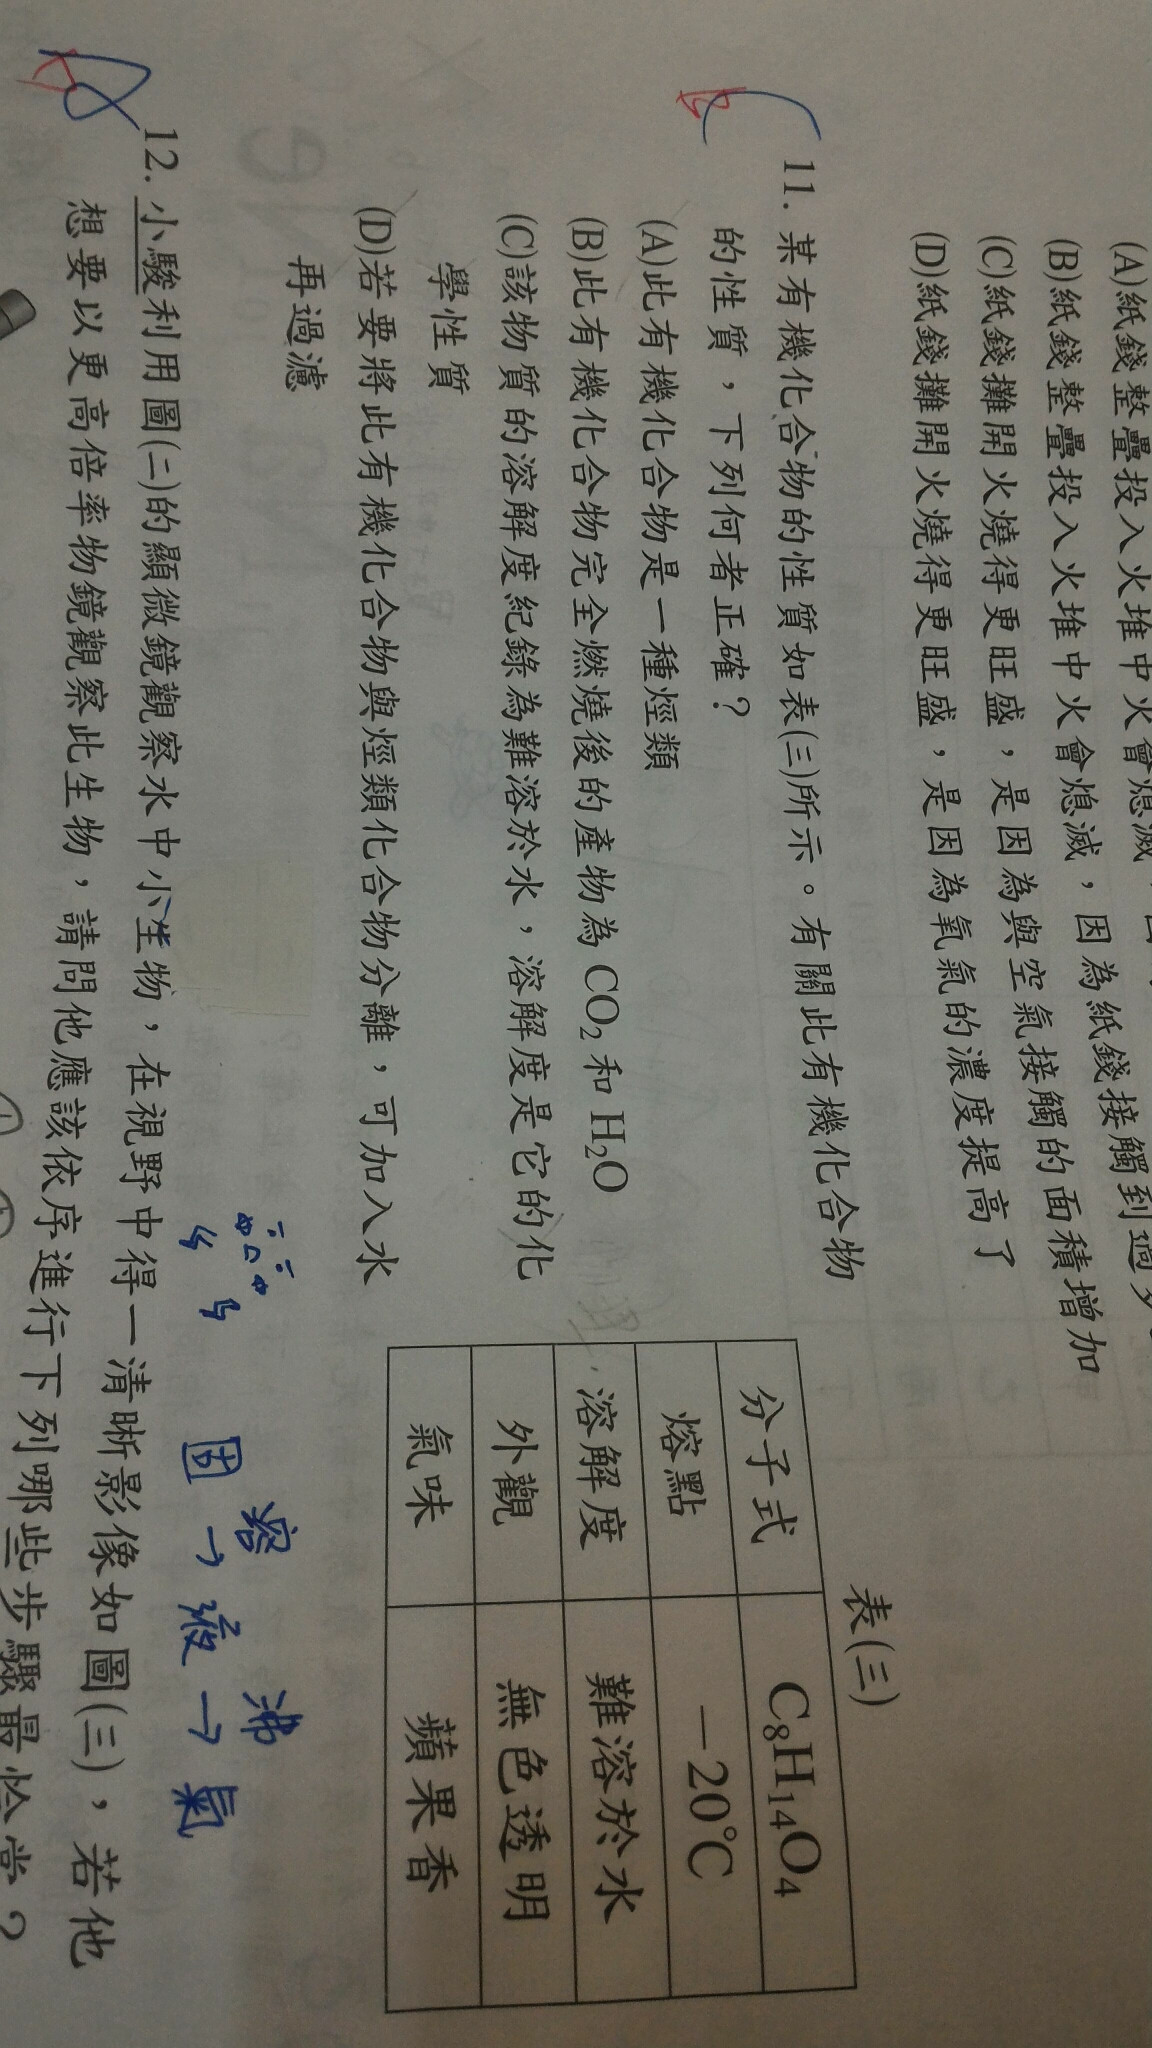 (A)紙錢整疊投入火堆中火會熄滅,
(B)紙錢整疊投入火堆中火會熄滅,因為紙錢接觸到過多
(C)紙錢攤開火燒得更旺盛,是因為與空氣接觸的面積增加
(D)紙錢攤開火燒得更旺盛,是因為氧氣的濃度提高了
11. 某有機化合物的性質如表(三)所示。有關此有機化合物
的性質,下列何者正確?
(A)此有機化合物是一種烴類
(B)此有機化合物完全燃燒後的產物為 CO₂ 和 H₂O
(C)該物質的溶解度紀錄為難溶於水,溶解度是它的化
學性質
(D)若要將此有機化合物與烴類化合物分離,可加入水
再過濾
表(三)
分子式 C₈H₁₄O₄
熔點 -20℃
溶解度 難溶於水
外觀 無色透明
氣味 蘋果香
溶 沸
固→液→氣
12. 小駿利用圖(二)的顯微鏡觀察水中小生物,在視野中得一清晰影像如圖(三),若他
想要以更高倍率物鏡觀察此生物,請問他應該依序進行下列哪些步驟最恰當?